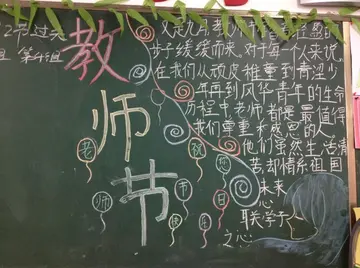 教
师
节
又是九月,教师节踏着轻盈的
步子缓缓而来。对于每个人来说,
在我们从顽皮稚童到青涩少
年再到风华青年的生命
历程中,老师都是最值得
我们尊重和感恩的人。
他们虽然生活清
苦,却情系祖国
未来
心
联学于人
之心
过关
第4组
老
师
祝
节
日